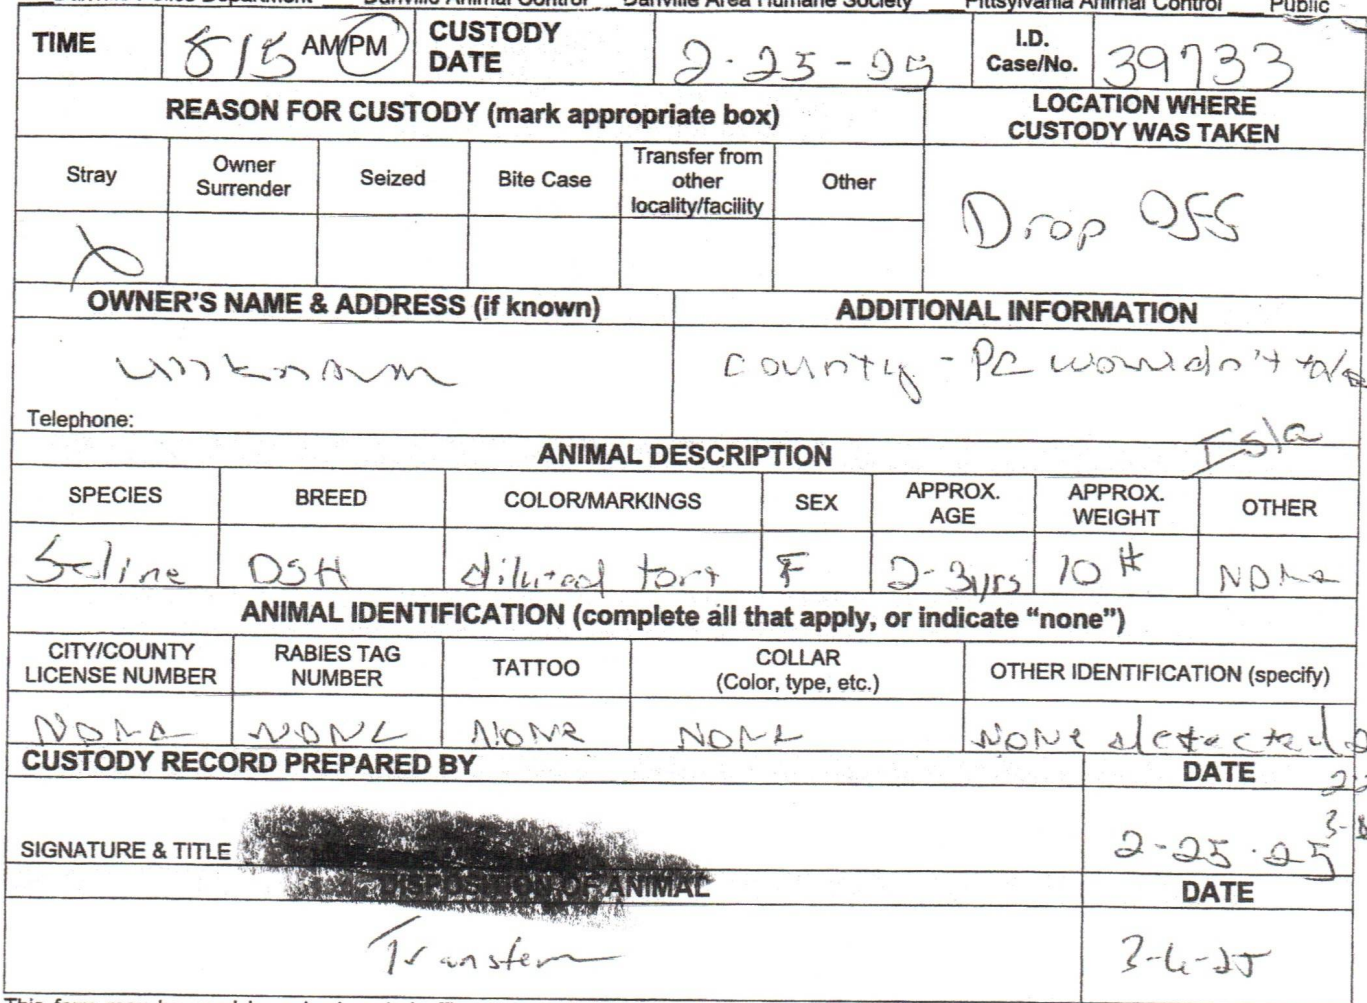 Danville Police Department Danville Animal Control Danville Area Humane Society Pittsylvania Animal Control Public
TIME 815 AM/PM CUSTODY DATE 2-25-25 I.D. Case/No. 39733
REASON FOR CUSTODY (mark appropriate box) LOCATION WHERE CUSTODY WAS TAKEN
Stray Owner Surrender Seized Bite Case Transfer from other locality/facility Other
X Drop Off
OWNER'S NAME & ADDRESS (if known) ADDITIONAL INFORMATION
unknown county - PC wouldn't take
Telephone:
Isla
ANIMAL DESCRIPTION
SPECIES BREED COLOR/MARKINGS SEX APPROX. AGE APPROX. WEIGHT OTHER
feline DSH diluted tort F 2-3yrs 10# None
ANIMAL IDENTIFICATION (complete all that apply, or indicate "none")
CITY/COUNTY LICENSE NUMBER RABIES TAG NUMBER TATTOO COLLAR (Color, type, etc.) OTHER IDENTIFICATION (specify)
None None None None None detected
CUSTODY RECORD PREPARED BY DATE
SIGNATURE & TITLE 2-25-25
DISPOSITION OF ANIMAL DATE
Transfer